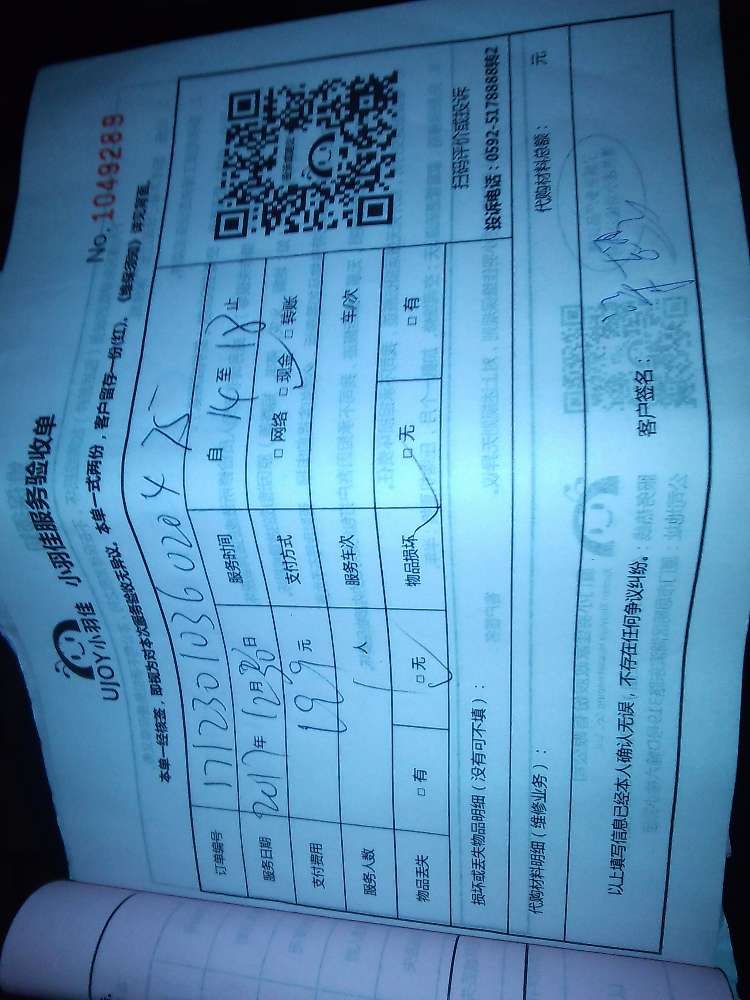 No. 1049289
UJOY小羽佳 小羽佳服务验收单
本单一经核签，即视为对本次服务验收无异议。本单一式两份，客户留存一份(红)。《维保须知》详见背面。
订单编号 1712301036020475
服务日期 2017年12月30日 服务时间 自14至18止
支付费用 199元 支付方式 □网络 □现金 □转账
服务人数 1人 服务车次 车/次
物品丢失 □有 □无 物品损坏 □无 □有
扫码评价或投诉
投诉电话：0592-5178888转2
损坏或丢失物品明细（没有可不填）：
代购材料明细（维修业务）： 代购材料总额： 元
以上填写信息已经本人确认无误，不存在任何争议纠纷。 客户签名：